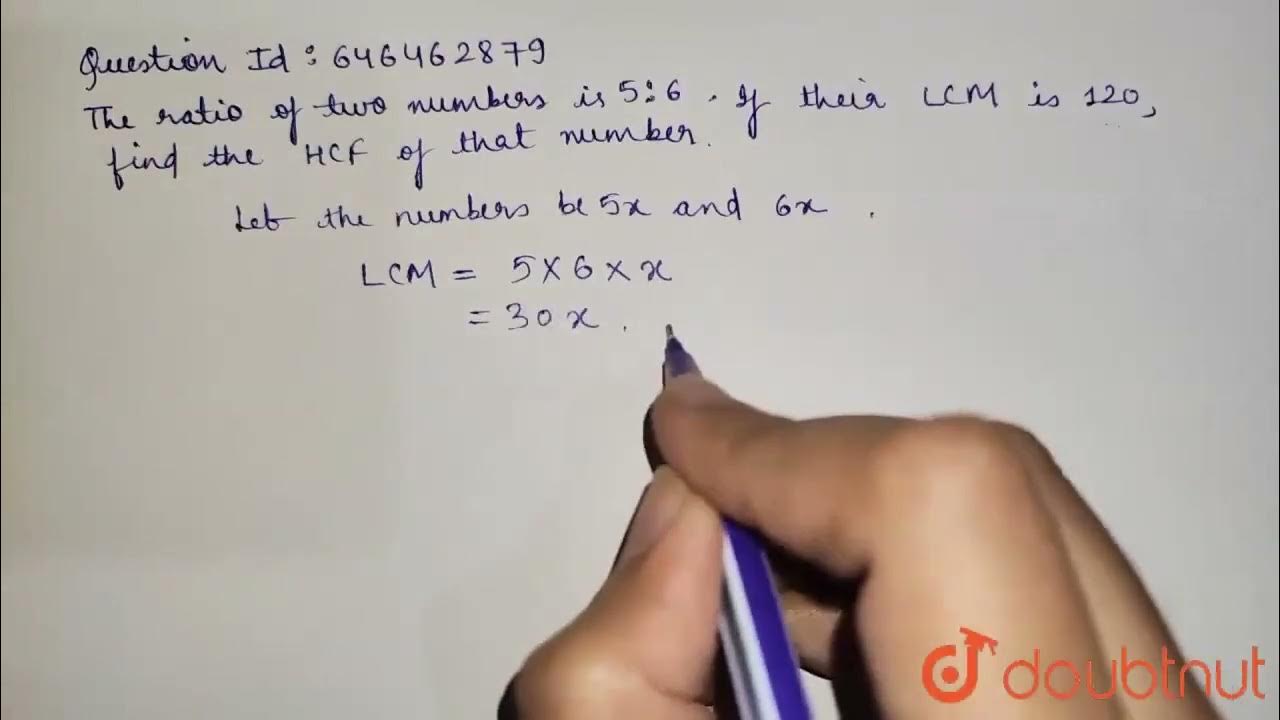 Question Id : 646462879
The ratio of two numbers is 5:6 . If their LCM is 120,
find the HCF of that number.
Let the numbers be 5x and 6x .
LCM = 5 × 6 × x
= 30 x .
doubtnut